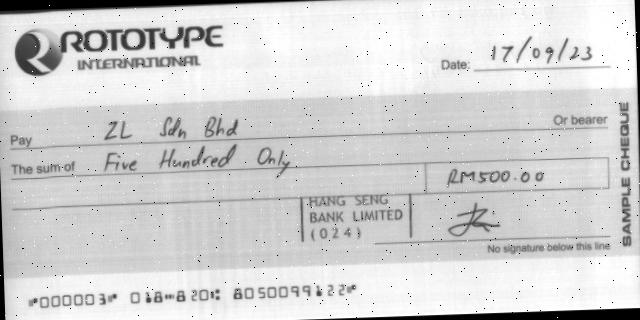 ROTOTYPE
INTERNATIONAL
Date: 17/09/23
Pay ZL Sdn Bhd Or bearer
The sum of Five Hundred Only
RM500.00
HANG SENG
BANK LIMITED
(024)
No signature below this line
SAMPLE CHEQUE
⑈000003⑈ 018⑉820⑆ 8050099122⑈